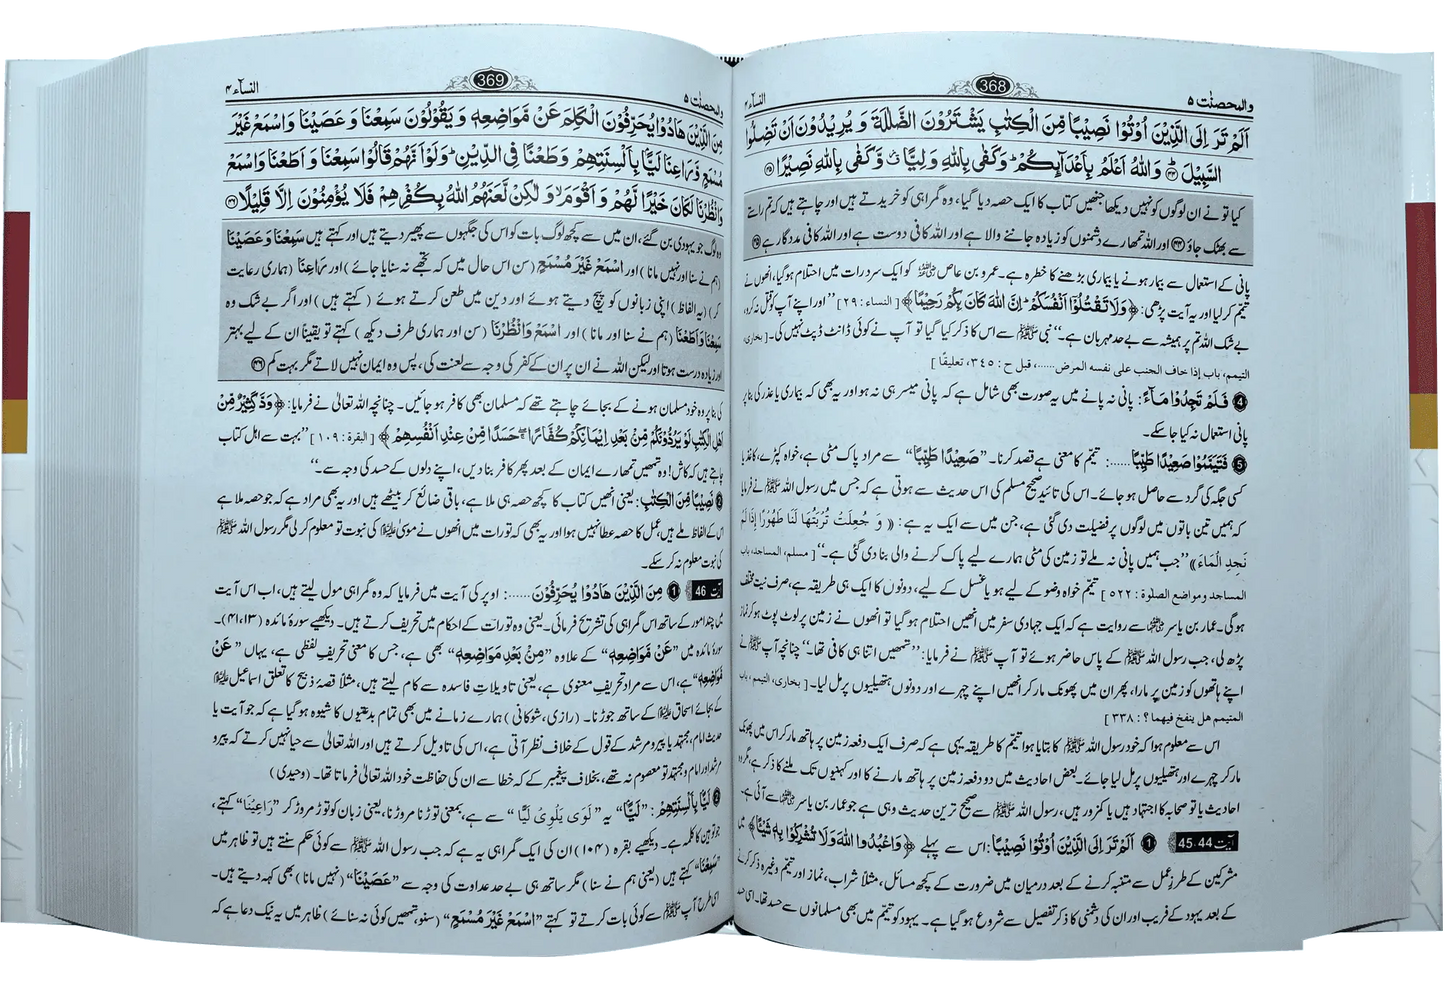 والمحصنٰت ۵
368
النساء ۴
اَلَمْ تَرَ اِلَى الَّذِيْنَ اُوْتُوْا نَصِيْبًا مِّنَ الْكِتٰبِ يَشْتَرُوْنَ الضَّلٰلَةَ وَ يُرِيْدُوْنَ اَنْ تَضِلُّوا
السَّبِيْلَ ﴿۴۴﴾ وَ اللّٰهُ اَعْلَمُ بِاَعْدَآىِٕكُمْ وَ كَفٰى بِاللّٰهِ وَلِيًّا وَّ كَفٰى بِاللّٰهِ نَصِيْرًا ﴿۴۵﴾
کیا تو نے ان لوگوں کو نہیں دیکھا جنھیں کتاب کا ایک حصہ دیا گیا، وہ گمراہی کو خریدتے ہیں اور چاہتے ہیں کہ تم راستے
سے بھٹک جاؤ ﴿۴۴﴾ اور اللہ تمھارے دشمنوں کو زیادہ جاننے والا ہے اور اللہ کافی دوست ہے اور اللہ کافی مددگار ہے ﴿۴۵﴾
پانی کے استعمال سے بیمار ہونے یا بیماری بڑھنے کا خطرہ ہے۔ عمرو بن عاص رضی اللہ عنہ کو ایک سرد رات میں احتلام ہو گیا، انھوں نے
تیمم کر لیا اور یہ آیت پڑھی: ﴿وَ لَا تَقْتُلُوْۤا اَنْفُسَكُمْ اِنَّ اللّٰهَ كَانَ بِكُمْ رَحِيْمًا﴾ [ النساء : ٢٩ ] ’’اور اپنے آپ کو قتل نہ کرو،
بے شک اللہ تم پر ہمیشہ سے بے حد مہربان ہے۔‘‘ نبی ﷺ سے اس کا ذکر کیا گیا تو آپ نے کوئی ڈانٹ ڈپٹ نہیں کی۔ [ بخاری،
التیمم، باب إذا خاف الجنب علی نفسہ المرض......، قبل ح : ٣٤٥، تعلیقًا ]
4 فَلَمْ تَجِدُوْا مَآءً: پانی نہ پانے میں یہ صورت بھی شامل ہے کہ پانی میسر ہی نہ ہو اور یہ بھی کہ بیماری یا عذر کی بنا پر
پانی استعمال نہ کیا جا سکے۔
5 فَتَيَمَّمُوْا صَعِيْدًا طَيِّبًا......: تیمم کا معنی ہے قصد کرنا۔ ”صَعِيْدًا طَيِّبًا“ سے مراد پاک مٹی ہے، خواہ کپڑے، کاغذ یا
کسی جگہ کی گرد سے حاصل ہو جائے۔ اس کی تائید صحیح مسلم کی اس حدیث سے ہوتی ہے کہ جس میں رسول اللہ ﷺ نے فرمایا
کہ ہمیں تین باتوں میں لوگوں پر فضیلت دی گئی ہے، جن میں سے ایک یہ ہے: « وَ جُعِلَتْ تُرْبَتُهَا لَنَا طَهُوْرًا إِذَا لَمْ
نَجِدِ الْمَاءَ » ’’جب ہمیں پانی نہ ملے تو زمین کی مٹی ہمارے لیے پاک کرنے والی بنا دی گئی ہے۔‘‘ [ مسلم، المساجد، باب
المساجد ومواضع الصلوة : ٥٢٢ ] تیمم خواہ وضو کے لیے ہو یا غسل کے لیے، دونوں کا ایک ہی طریقہ ہے، صرف نیت مختلف
ہو گی۔ عمار بن یاسر رضی اللہ عنہما سے روایت ہے کہ ایک جہادی سفر میں انھیں احتلام ہو گیا تو انھوں نے زمین پر لوٹ پوٹ ہو کر نماز
پڑھ لی، جب رسول اللہ ﷺ کے پاس حاضر ہوئے تو آپ ﷺ نے فرمایا: ’’تمھیں اتنا ہی کافی تھا۔‘‘ چنانچہ آپ ﷺ نے
اپنے ہاتھوں کو زمین پر مارا، پھر ان میں پھونک مار کر انھیں اپنے چہرے اور دونوں ہتھیلیوں پر مل لیا۔ [ بخاری، التیمم، باب
المتیمم هل ینفخ فیہما؟ : ٣٣٨ ]
اس سے معلوم ہوا کہ خود رسول اللہ ﷺ کا بتایا ہوا تیمم کا طریقہ یہی ہے کہ صرف ایک دفعہ زمین پر ہاتھ مار کر اس میں پھونک
مار کر چہرے اور ہتھیلیوں پر مل لیا جائے۔ بعض احادیث میں دو دفعہ زمین پر ہاتھ مارنے کا اور کہنیوں تک ملنے کا ذکر ہے، مگر وہ
احادیث یا تو صحابہ کا اجتہاد ہیں یا کمزور ہیں، رسول اللہ ﷺ سے صحیح ترین حدیث وہی ہے جو عمار بن یاسر رضی اللہ عنہما سے آئی ہے۔
آیت 45،44 1 اَلَمْ تَرَ اِلَى الَّذِيْنَ اُوْتُوْا نَصِيْبًا: اس سے پہلے ﴿وَ اعْبُدُوا اللّٰهَ وَ لَا تُشْرِكُوْا بِهٖ شَيْـًٔا﴾ میں
مشرکین کے طرزِ عمل سے متنبہ کرنے کے بعد درمیان میں ضرورت کے کچھ مسائل، مثلاً شراب، نماز اور تیمم وغیرہ ذکر کرنے
کے بعد یہود کے فریب اور ان کی دشمنی کا ذکر تفصیل سے شروع ہو گیا ہے۔ یہود کو تیمم میں بھی مسلمانوں سے حسد تھا۔ اسی حسد
والمحصنٰت ۵
369
النساء ۴
مِنَ الَّذِيْنَ هَادُوْا يُحَرِّفُوْنَ الْكَلِمَ عَنْ مَّوَاضِعِهٖ وَ يَقُوْلُوْنَ سَمِعْنَا وَ عَصَيْنَا وَ اسْمَعْ غَيْرَ
مُسْمَعٍ وَّ رَاعِنَا لَيًّۢا بِاَلْسِنَتِهِمْ وَ طَعْنًا فِى الدِّيْنِ وَ لَوْ اَنَّهُمْ قَالُوْا سَمِعْنَا وَ اَطَعْنَا وَ اسْمَعْ
وَ انْظُرْنَا لَكَانَ خَيْرًا لَّهُمْ وَ اَقْوَمَ وَ لٰكِنْ لَّعَنَهُمُ اللّٰهُ بِكُفْرِهِمْ فَلَا يُؤْمِنُوْنَ اِلَّا قَلِيْلًا ﴿۴۶﴾
وہ لوگ جو یہودی بن گئے، ان میں سے کچھ لوگ بات کو اس کی جگہوں سے پھیر دیتے ہیں اور کہتے ہیں سَمِعْنَا وَ عَصَيْنَا
(ہم نے سنا اور نہیں مانا) اور اسْمَعْ غَيْرَ مُسْمَعٍ (سن اس حال میں کہ تجھے نہ سنایا جائے) اور رَاعِنَا (ہماری رعایت
کر) (یہ الفاظ) اپنی زبانوں کو پیچ دیتے ہوئے اور دین میں طعن کرتے ہوئے (کہتے ہیں) اور اگر بے شک وہ
سَمِعْنَا وَ اَطَعْنَا (ہم نے سنا اور مانا) اور اسْمَعْ وَ انْظُرْنَا (سن اور ہماری طرف دیکھ) کہتے تو یقیناً ان کے لیے بہتر
اور زیادہ درست ہوتا اور لیکن اللہ نے ان پر ان کے کفر کی وجہ سے لعنت کی، پس وہ ایمان نہیں لاتے مگر بہت کم ﴿۴۶﴾
کی بنا پر وہ خود مسلمان ہونے کے بجائے چاہتے تھے کہ مسلمان بھی کافر ہو جائیں۔ چنانچہ اللہ تعالیٰ نے فرمایا: ﴿وَدَّ كَثِيْرٌ مِّنْ
اَهْلِ الْكِتٰبِ لَوْ يَرُدُّوْنَكُمْ مِّنْۢ بَعْدِ اِيْمَانِكُمْ كُفَّارًا حَسَدًا مِّنْ عِنْدِ اَنْفُسِهِمْ﴾ [ البقرة : ١٠٩ ] ’’بہت سے اہل کتاب
چاہتے ہیں کہ کاش! وہ تمھیں تمھارے ایمان کے بعد پھر کافر بنا دیں، اپنے دلوں کے حسد کی وجہ سے۔‘‘
2 نَصِيْبًا مِّنَ الْكِتٰبِ: یعنی انھیں کتاب کا کچھ حصہ ہی ملا ہے، باقی ضائع کر بیٹھے ہیں اور یہ بھی مراد ہے کہ جو حصہ ملا ہے
اس کے الفاظ ملے ہیں، عمل کا حصہ عطا نہیں ہوا اور یہ بھی کہ تورات میں انھوں نے موسیٰ علیہ السلام کی نبوت تو معلوم کر لی مگر رسول اللہ ﷺ
کی نبوت معلوم نہ کر سکے۔
آیت 46 1 مِنَ الَّذِيْنَ هَادُوْا يُحَرِّفُوْنَ......: اوپر کی آیت میں فرمایا کہ وہ گمراہی مول لیتے ہیں، اب اس آیت
میں چند امور کے ساتھ اس گمراہی کی تشریح فرمائی۔ یعنی وہ تورات کے احکام میں تحریف کرتے ہیں۔ دیکھیے سورۂ مائدہ (۱۳، ۴۱)۔
سورۂ مائدہ میں ”عَنْ مَّوَاضِعِهٖ“ کے علاوہ ”مِنْۢ بَعْدِ مَوَاضِعِهٖ“ بھی ہے، جس کا معنی تحریفِ لفظی ہے، یہاں ”عَنْ
مَّوَاضِعِهٖ“ ہے، اس سے مراد تحریفِ معنوی ہے، یعنی تاویلاتِ فاسدہ سے کام لیتے ہیں، مثلاً قصۂ ذبیح کا تعلق اسماعیل علیہ السلام
کے بجائے اسحاق علیہ السلام کے ساتھ جوڑنا۔ (رازی، شوکانی) ہمارے زمانے میں بھی تمام بدعتیوں کا شیوہ ہو گیا ہے کہ جو آیت یا
حدیث امام، مجتہد یا پیر و مرشد کے قول کے خلاف نظر آتی ہے، اس کی تاویل کرتے ہیں اور اللہ تعالیٰ سے حیا نہیں کرتے کہ پیر و
مرشد اور امام و مجتہد تو معصوم نہ تھے، بخلاف پیغمبر کے کہ خطا سے ان کی حفاظت خود اللہ تعالیٰ فرماتا تھا۔ (وحیدی)
2 لَيًّۢا بِاَلْسِنَتِهِمْ: ”لَيًّا“ یہ ”لَوَى يَلْوِيْ لَيًّا“ سے ہے، بمعنی توڑنا مروڑنا، یعنی زبان کو توڑ مروڑ کر ”رَاعِيْنَا“ کہتے،
جو توہین کا کلمہ ہے۔ دیکھیے بقرہ (۱۰۴) ان کی ایک گمراہی یہ ہے کہ جب رسول اللہ ﷺ سے کوئی حکم سنتے ہیں تو ظاہر میں
”سَمِعْنَا“ کہتے ہیں (یعنی ہم نے سنا) مگر ساتھ ہی بے حد عداوت کی وجہ سے ”عَصَيْنَا“ (نہیں مانا) بھی کہہ دیتے ہیں۔
اسی طرح آپ ﷺ سے کوئی بات کرتے تو کہتے ”اسْمَعْ غَيْرَ مُسْمَعٍ“ (سنو، تمھیں کوئی نہ سنائے) ظاہر میں یہ نیک دعا ہے کہ